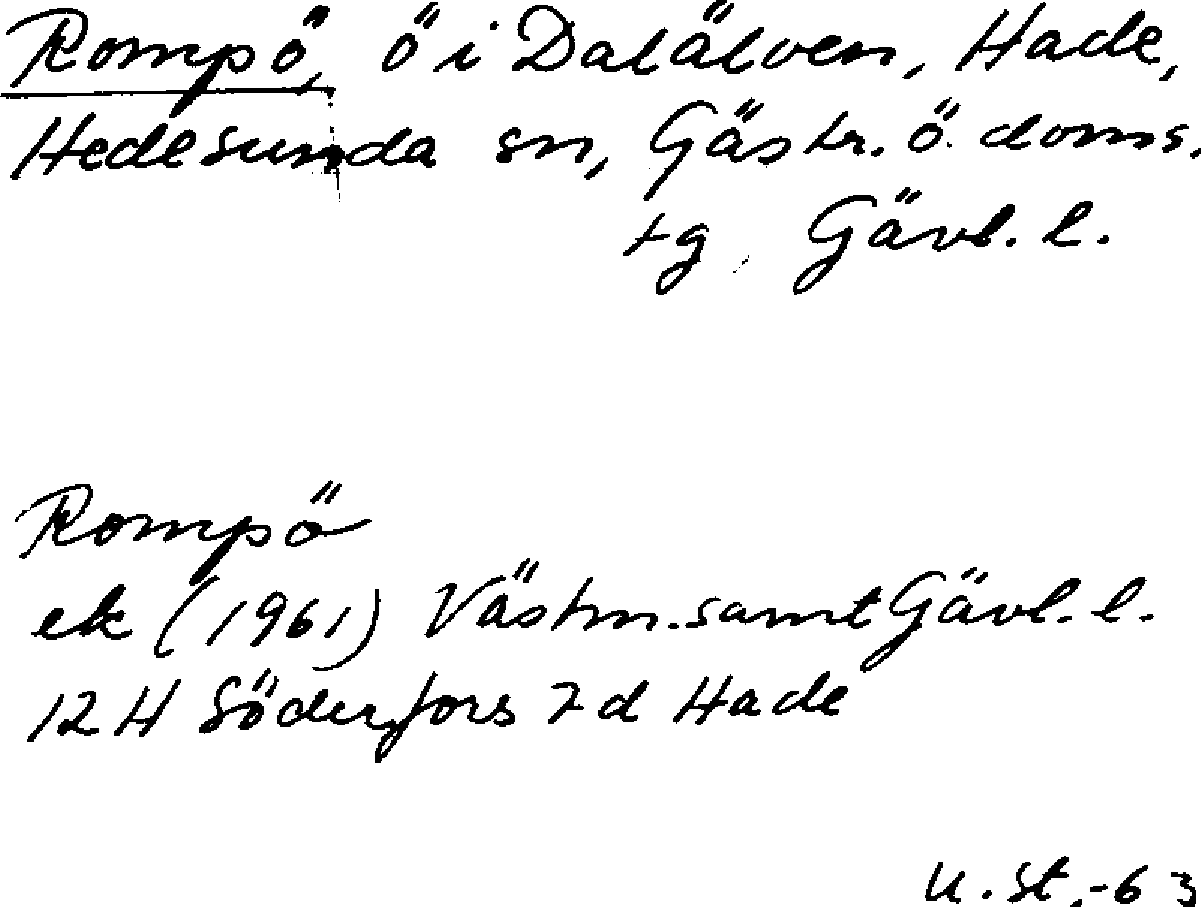 Rompö, ö i Dalälven, Hade,
Hedesunda sn, Gästr. ö. doms.
tg, Gävl. l.
Rompö
ek (1961) Västm. samt Gävl. l.
12 H Söderfors 7 d Hade
U. St. -63